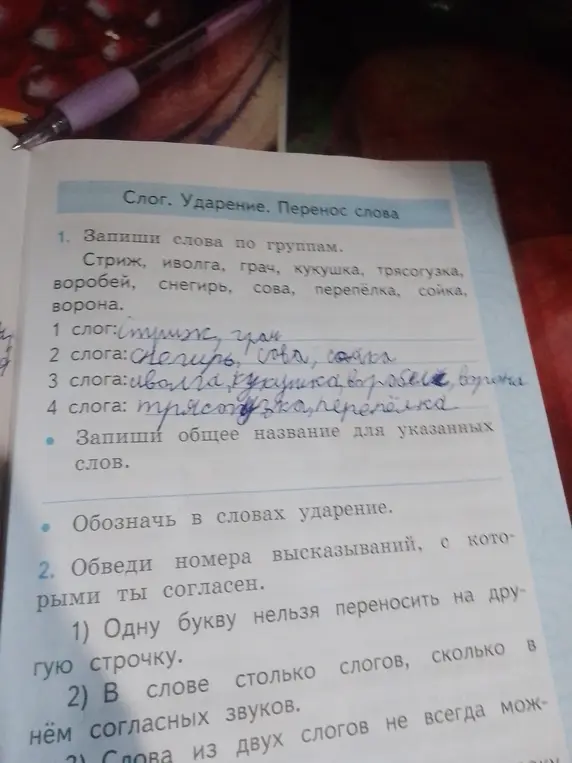 Слог. Ударение. Перенос слова
1. Запиши слова по группам.
Стриж, иволга, грач, кукушка, трясогузка,
воробей, снегирь, сова, перепёлка, сойка,
ворона.
1 слог: стриж, грач
2 слога: снегирь, сова, сойка
3 слога: иволга, кукушка, воробей, ворона
4 слога: трясогузка, перепёлка
• Запиши общее название для указанных
слов.
• Обозначь в словах ударение.
2. Обведи номера высказываний, с кото-
рыми ты согласен.
1) Одну букву нельзя переносить на дру-
гую строчку.
2) В слове столько слогов, сколько в
нём согласных звуков.
3) Слова из двух слогов не всегда мож-